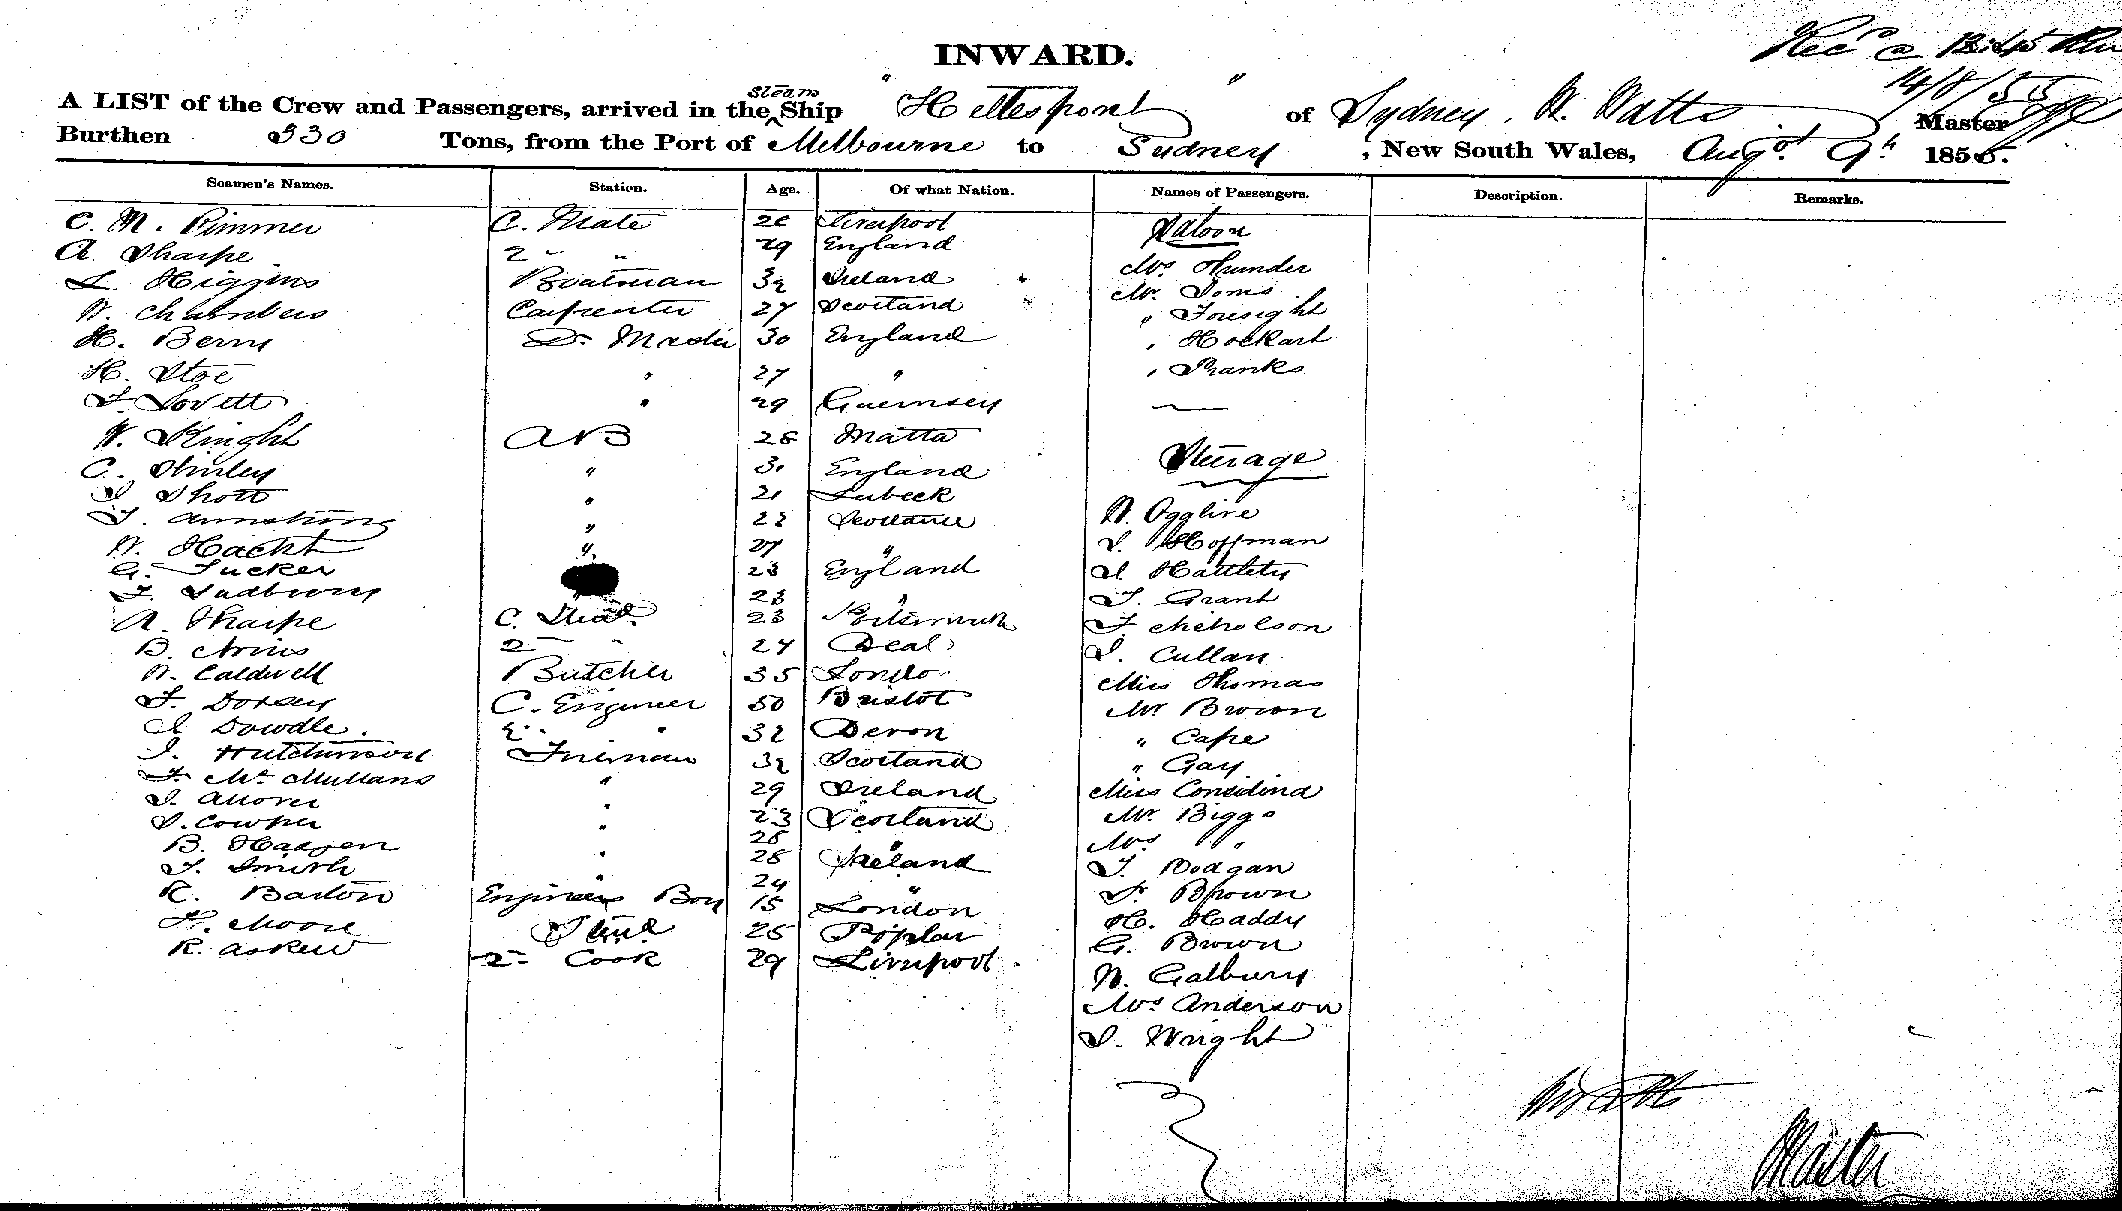 Rec'd @ 12.45 PM
14/8/55
INWARD.
A LIST of the Crew and Passengers, arrived in the Steam Ship "Hellespont" of Sydney, W. Watts Master
Burthen 330 Tons, from the Port of Melbourne to Sydney, New South Wales, Augst 9th 1855.
Seamen's Names. Station. Age. Of what Nation. Names of Passengers. Description. Remarks.
C. M. Rimmer C. Mate 26 Liverpool Saloon
A. Sharpe 2 " " 29 England
L. Higgins Boatman 32 Ireland Mrs Thunder
W. Chambers Carpenter 27 Scotland Mr. Toms
H. Berry Q. Master 30 England " Foresight
H. Stoe " 27 " " Hockart
T. Lovett " 29 Guernsey " Shanks
W. Knight AB 26 Malta Steerage
C. Shirley " 31 England
S. Shott " 21 Lubeck
T. Armstrong " 22 Scotland W. Ogglive
W. Hackt " 27 " S. Hoffman
G. Tucker 23 England J. Hattlety
T. Sadbury 23 " T. Grant
A. Tharpe C. Stewd. 23 Portsmouth T Nicholson
B. 2 " 24 Deal J. Cullan
W. Caldwell Butcher 35 Londo Miss Thomas
T. Dorsey C. Engineer 50 Bristol Mr Brown
J Dowdle. 2 " 32 Devon " Cape
J. Hutchinson Fireman 32 Scotland " Gay
T. McMullans " 29 Ireland Miss Considind
J. " 23 Scotland Mr. Biggs
J. Cowper " 26 " Mrs "
B. Hadgen " 26 Ireland T. Dodgan
T. Smith " 24 " T. Brown
R. Barton Engineers Boy 15 London H. Haddy
H. Moore Stewd 26 Poplar G. Brown
R. Askew 2. Cook 29 Liverpool W. Galbury
Mrs Anderson
J. Wright
W Watts
Master